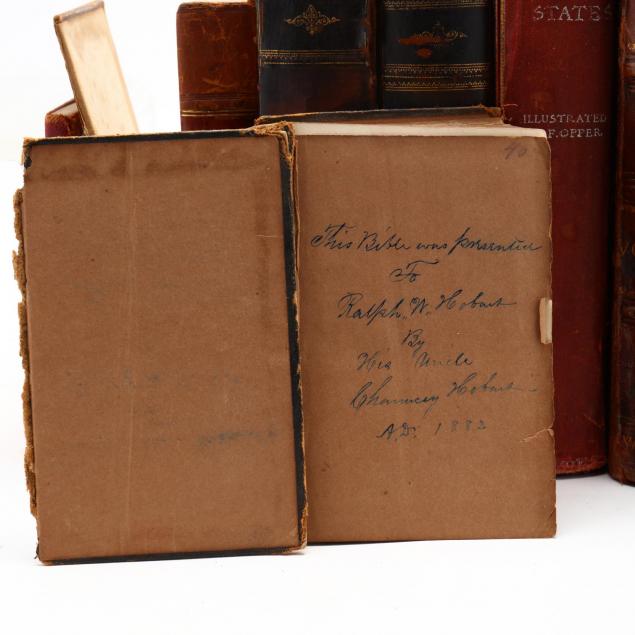 STATES
ILLUSTRATED
F. OPPER
40
This Bible was presented
To
Ralph. W. Hobart
By
His Uncle
Chauncey Hobart
A.D. 1882